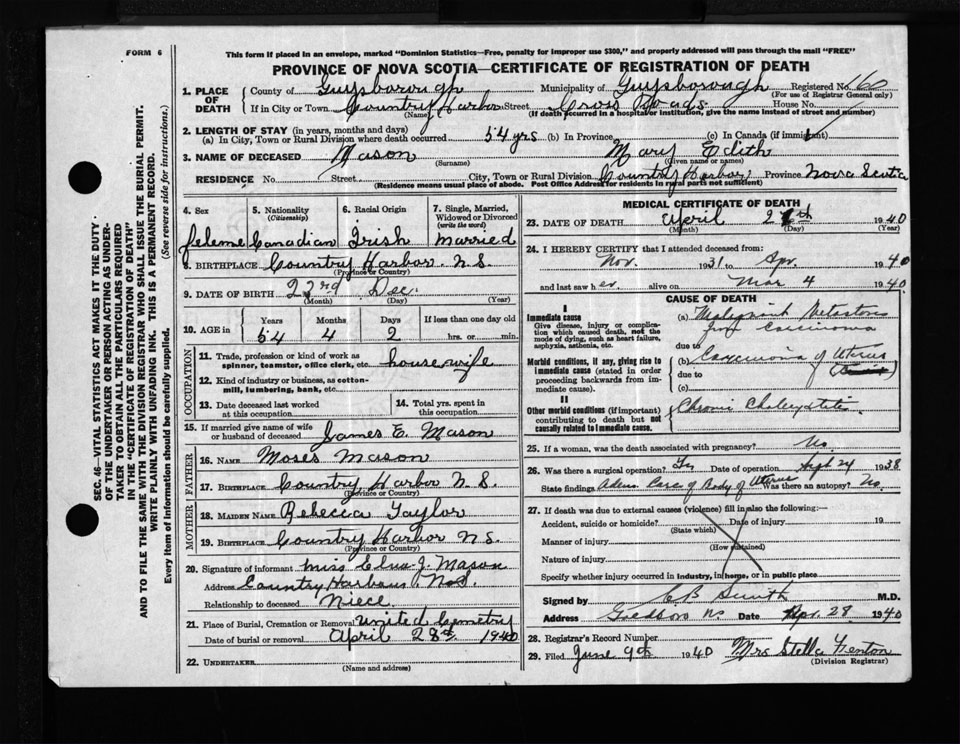 FORM 6
This form if placed in an envelope, marked "Dominion Statistics—Free, penalty for improper use $300," and properly addressed will pass through the mail "FREE"
PROVINCE OF NOVA SCOTIA—CERTIFICATE OF REGISTRATION OF DEATH
SEC. 46—VITAL STATISTICS ACT MAKES IT THE DUTY
OF THE UNDERTAKER OR PERSON ACTING AS UNDER-
TAKER TO OBTAIN ALL THE PARTICULARS REQUIRED
IN THE "CERTIFICATE OF REGISTRATION OF DEATH"
AND TO FILE THE SAME WITH THE DIVISION REGISTRAR WHO SHALL ISSUE THE BURIAL PERMIT.
WRITE PLAINLY WITH UNFADING INK. THIS IS A PERMANENT RECORD.
Every item of information should be carefully supplied. (See reverse side for instructions.)
1. PLACE OF DEATH County of Guysborough Municipality of Guysborough Registered No. 160
(For use of Registrar General only)
If in City or Town Country Harbor Street Cross Roads House No.
(Name) (If death occurred in a hospital or institution, give the name instead of street and number)
2. LENGTH OF STAY (in years, months and days)
(a) In City, Town or Rural Division where death occurred 54 yrs (b) In Province (c) In Canada (if immigrant)
3. NAME OF DECEASED Mason Mary Edith
(Surname) (Given name or names)
RESIDENCE No. Street City, Town or Rural Division Country Harbor Province Nova Scotia
(Residence means usual place of abode. Post Office Address for residents in rural parts not sufficient)
4. Sex 5. Nationality (Citizenship) 6. Racial Origin 7. Single, Married, Widowed or Divorced (write the word)
Canadian Irish married
8. BIRTHPLACE Country Harbor N.S.
(Province or Country)
9. DATE OF BIRTH 23rd Dec.
(Month) (Day) (Year)
10. AGE in Years Months Days If less than one day old
54 4 2 hrs. or min.
OCCUPATION
11. Trade, profession or kind of work as spinner, teamster, office clerk, etc. housewife
12. Kind of industry or business, as cotton-mill, lumbering, bank, etc.
13. Date deceased last worked at this occupation
14. Total yrs. spent in this occupation
15. If married give name of wife or husband of deceased James E. Mason
FATHER
16. NAME Moses Mason
17. BIRTHPLACE Country Harbor N.S.
(Province or Country)
MOTHER
18. MAIDEN NAME Rebecca Taylor
19. BIRTHPLACE Country Harbor N.S.
(Province or Country)
20. Signature of informant Miss J. Mason
Address Country Harbour N.S.
Relationship to deceased Niece
21. Place of Burial, Cremation or Removal United Cemetry
Date of burial or removal April 28th 1940
22. UNDERTAKER
(Name and address)
MEDICAL CERTIFICATE OF DEATH
23. DATE OF DEATH April 1940
(Month) (Day) (Year)
24. I HEREBY CERTIFY that I attended deceased from:
Nov. 1931 to Apr. 1940
and last saw her alive on Mar 4 1940
CAUSE OF DEATH
I
Immediate cause
Give disease, injury or complication which caused death, not the mode of dying, such as heart failure, asphyxia, asthenia, etc.
(a) Malignant Metastasis
from Carcinoma
due to
Morbid conditions, if any, giving rise to immediate cause (stated in order proceeding backwards from immediate cause).
(b) Carcinoma of Uterus
due to
(c)
II
Other morbid conditions (if important) contributing to death but not causally related to immediate cause.
Chronic
25. If a woman, was the death associated with pregnancy? No
26. Was there a surgical operation? Yes Date of operation Sept 24 1938
State findings Adeno Carc of Body of Uterus Was there an autopsy? No.
27. If death was due to external causes (violence) fill in also the following:—
Accident, suicide or homicide? Date of injury 19
(State which)
Manner of injury
(How sustained)
Nature of injury
Specify whether injury occurred in industry, in home, or in public place
Signed by Smith M.D.
Address Date Apr. 28 1940
28. Registrar's Record Number
29. Filed June 9th 1940 Mrs Stella Fenton
(Division Registrar)